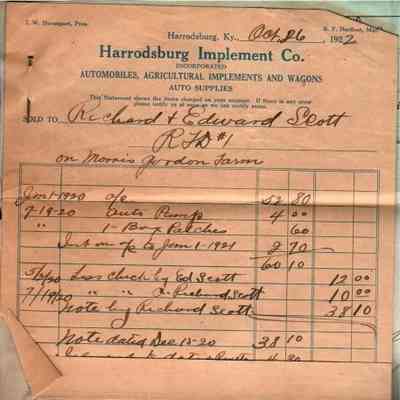 J. W. Davenport, Pres.
Harrodsburg, Ky., Oct 26 1922
Harrodsburg Implement Co.
INCORPORATED
AUTOMOBILES, AGRICULTURAL IMPLEMENTS AND WAGONS
AUTO SUPPLIES
This Statement shows the items charged on your account. If there is any error
please notify us at once so we can rectify same.
SOLD TO Richard & Edward Scott
RFD #1
on Morris Gordon Farm
Jan 1-1920 a/c 52 80
9-19-20 Auto Pump 4 00
" 1-Box Patches 60
Int on a/c to Jan 1-1921 2 70
60 10
Less Check by Ed Scott 12 00
" " R. Richard Scott 10 00
Note by Richard Scott 38 10
Note dated Dec 15-20 38 10